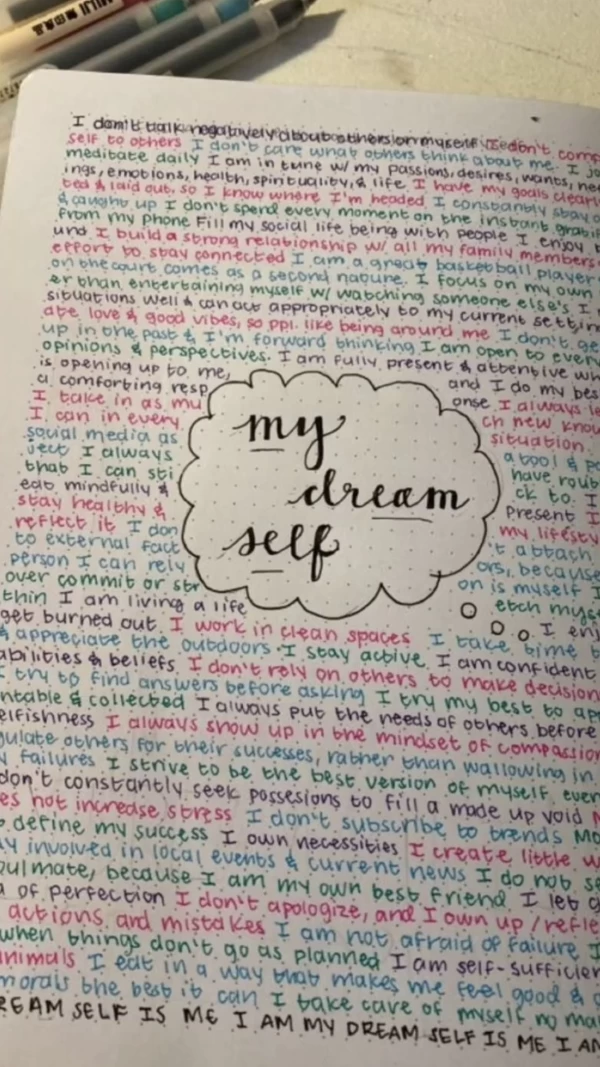 MUJI 無印良品
I don't talk negatively about others or myself I don't comp
self to others I don't care what others think about me. I jo
meditate daily I am in tune w/ my passions, desires, wants, nee
ings, emotions, health, spirituality, & life. I have my goals clearl
ted & laid out, so I know where I'm headed I constantly stay o
& caught up I don't spend every moment on the instant gratif
from my phone Fill my social life being with people I enjoy b
und I build a strong relationship w/ all my family members
effort to stay connected I am a great basketball player
on the court comes as a second nature. I focus on my own
er than entertaining myself w/ watching someone else's I
situations well & can act appropriately to my current settin
ate love & good vibes, so ppl. like being around me I don't ge
up in the past & I'm forward thinking I am open to every
opinions & perspectives. I am fully present & attentive wh
is opening up to me, and I do my bes
a comforting resp onse I always le
I take in as mu ch new know
I can in every situation.
social media as a tool & po
ject I always have rout
that I can sti ck to. I
eat mindfully & Present I
stay healthy & my lifesty
reflect it I don 't attach
to external fact ors, because
person I can rely on is myself I
over commit or str etch myse
my
dream
self
thin I am living a life I enj
get burned out I work in clean spaces I take time t
& appreciate the outdoors I stay active I am confident
abilities & beliefs. I don't rely on others to make decision
I try to find answers before asking I try my best to app
ntable & collected I always put the needs of others before
elfishness I always show up in the mindset of compassion
gulate others for their successes, rather than wallowing in
y failures I strive to be the best version of myself ever
don't constantly seek possesions to fill a made up void
es not increase stress I don't subscribe to trends Mo
o define my success I own necessities I create little w
ly involved in local events & current news I do not se
oulmate, because I am my own best friend I let g
a of perfection I don't apologize, and I own up / refle
actions and mistakes I am not afraid of failure I
when things don't go as planned I am self-sufficien
animals I eat in a way that makes me feel good &
morals the best it can I take care of myself no ma
REAM SELF IS ME I AM MY DREAM SELF IS ME I AM